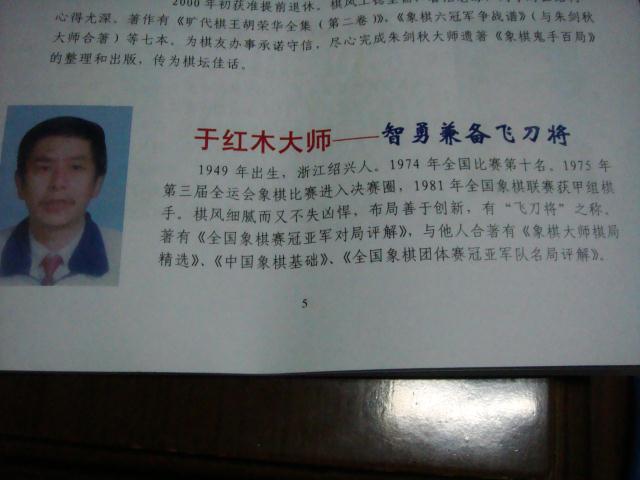 2000年初获准提前退休。棋风
心得尤深。著作有《旷代棋王胡荣华全集(第二卷)》、《象棋六冠军争战谱》(与朱剑秋
大师合著)等七本。为棋友办事承诺守信,尽心完成朱剑秋大师遗著《象棋鬼手百局》
的整理和出版,传为棋坛佳话。
于红木大师——智勇兼备飞刀将
1949年出生,浙江绍兴人。1974年全国比赛第十名。1975年
第三届全运会象棋比赛进入决赛圈,1981年全国象棋联赛获甲组棋
手。棋风细腻而又不失凶悍,布局善于创新,有“飞刀将”之称。
著有《全国象棋赛冠亚军对局评解》,与他人合著有《象棋大师棋局
精选》、《中国象棋基础》、《全国象棋团体赛冠亚军队名局评解》。
5